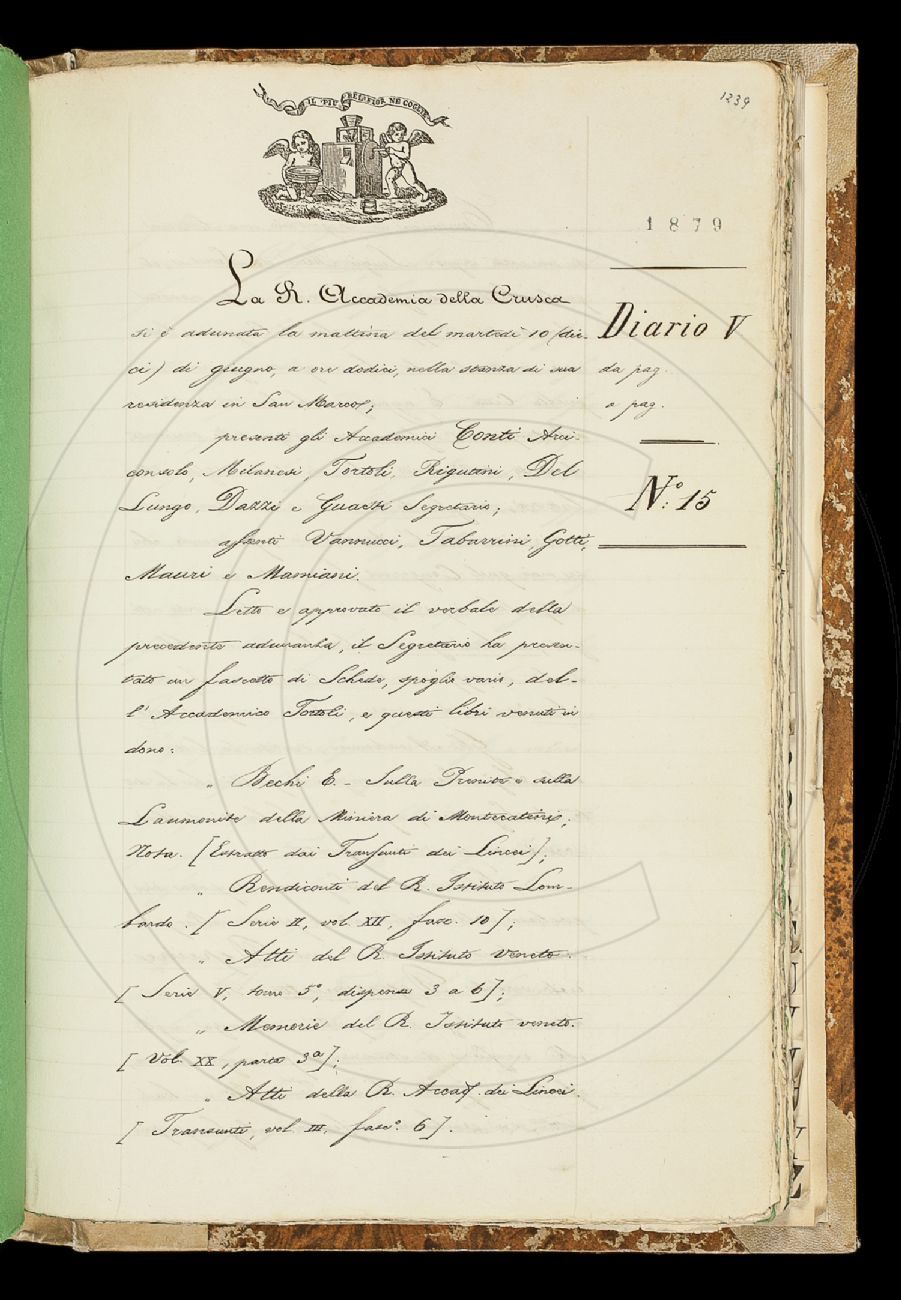 IL PIÙ BEL FIOR NE COGLIE
1239
1879
La R. Accademia della Crusca
si è adunata la mattina del martedì 10 (die-
ci) di giugno, a ore dodici, nella stanza di sua
residenza in San Marco;
presenti gli Accademici Conti Arci-
consolo, Milanesi, Tortoli, Rigutini, Del
Lungo, Dazzi e Guasti Segretario;
assenti Vannucci, Tabarrini, Gotti,
Mauri e Mamiani.
Letto e approvato il verbale della
precedente adunanza, il Segretario ha presen-
tato un fascetto di Schede, spoglio vario, del-
l'Accademico Tortoli, e questi libri venuti in
dono:
„ Bechi E. - Sulla Prenite e sulla
Laumonite della Miniera di Montecatini;
Nota. [Estratto dai Transunti dei Lincei];
„ Rendiconti del R. Istituto Lom-
bardo. [Serie II, vol. XII, fasc. 10];
„ Atti del R. Istituto Veneto.
[Serie V, tomo 5°, dispensa 3 a 6];
„ Memorie del R. Istituto veneto.
[Vol. XX, parte 3ª];
„ Atti della R. Accad. dei Lincei.
[Transunti, vol. III, fasc.° 6].
Diario V
da pag.
a pag.
N.° 15